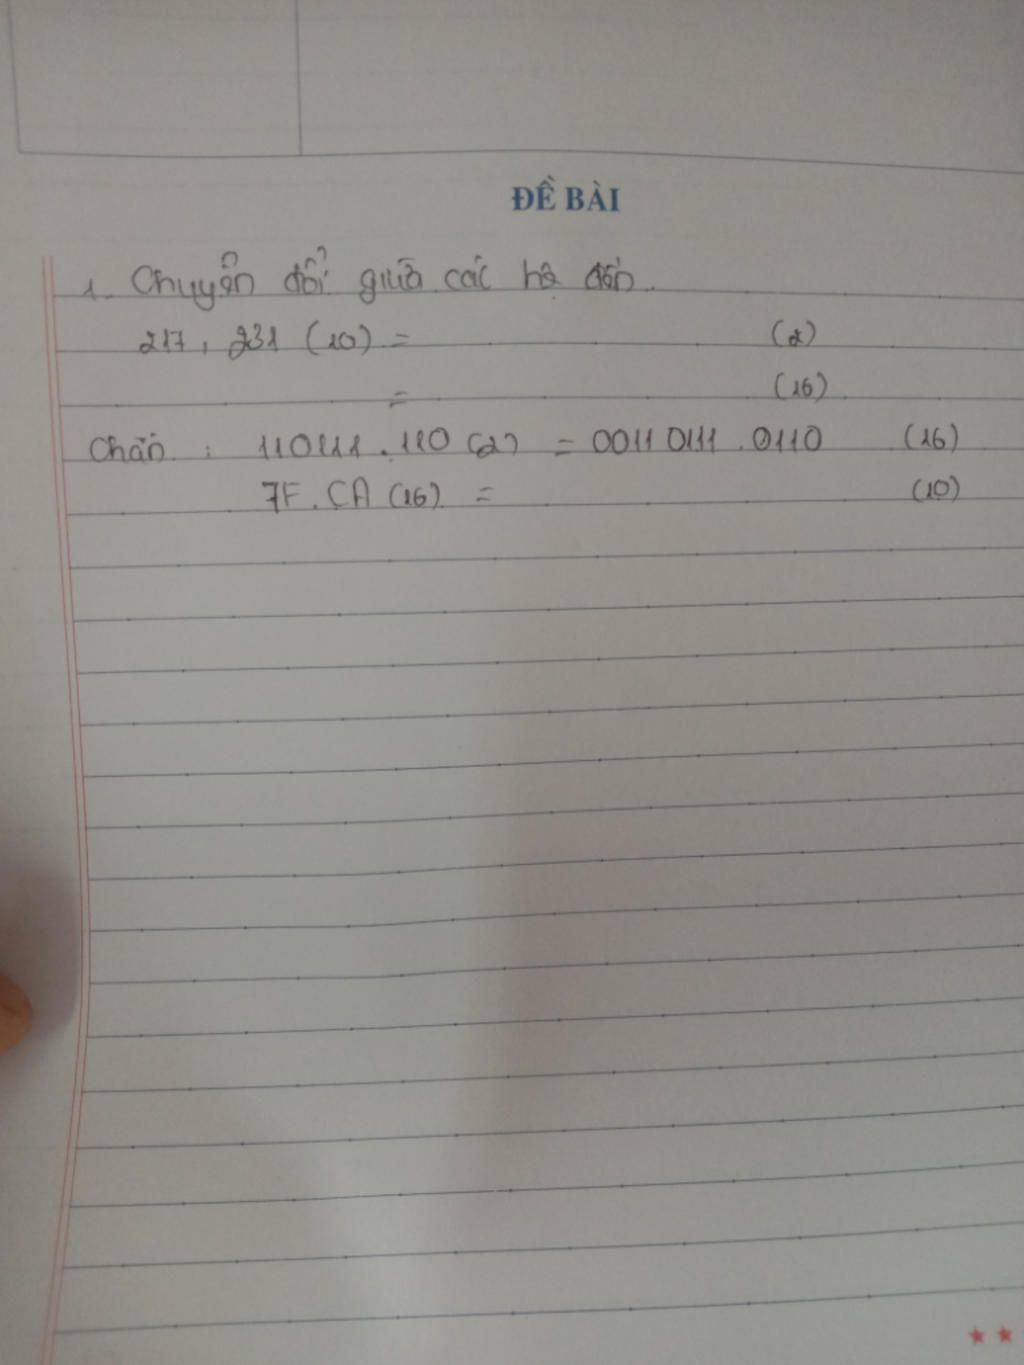 ĐỀ BÀI
1. Chuyển đổi giữa các hệ đếm.
217, 231 (10) = (2)
= (16)
Chẵn : 110111.110 (2) = 0011 0111 .0110 (16)
7F.CA (16) = (10)